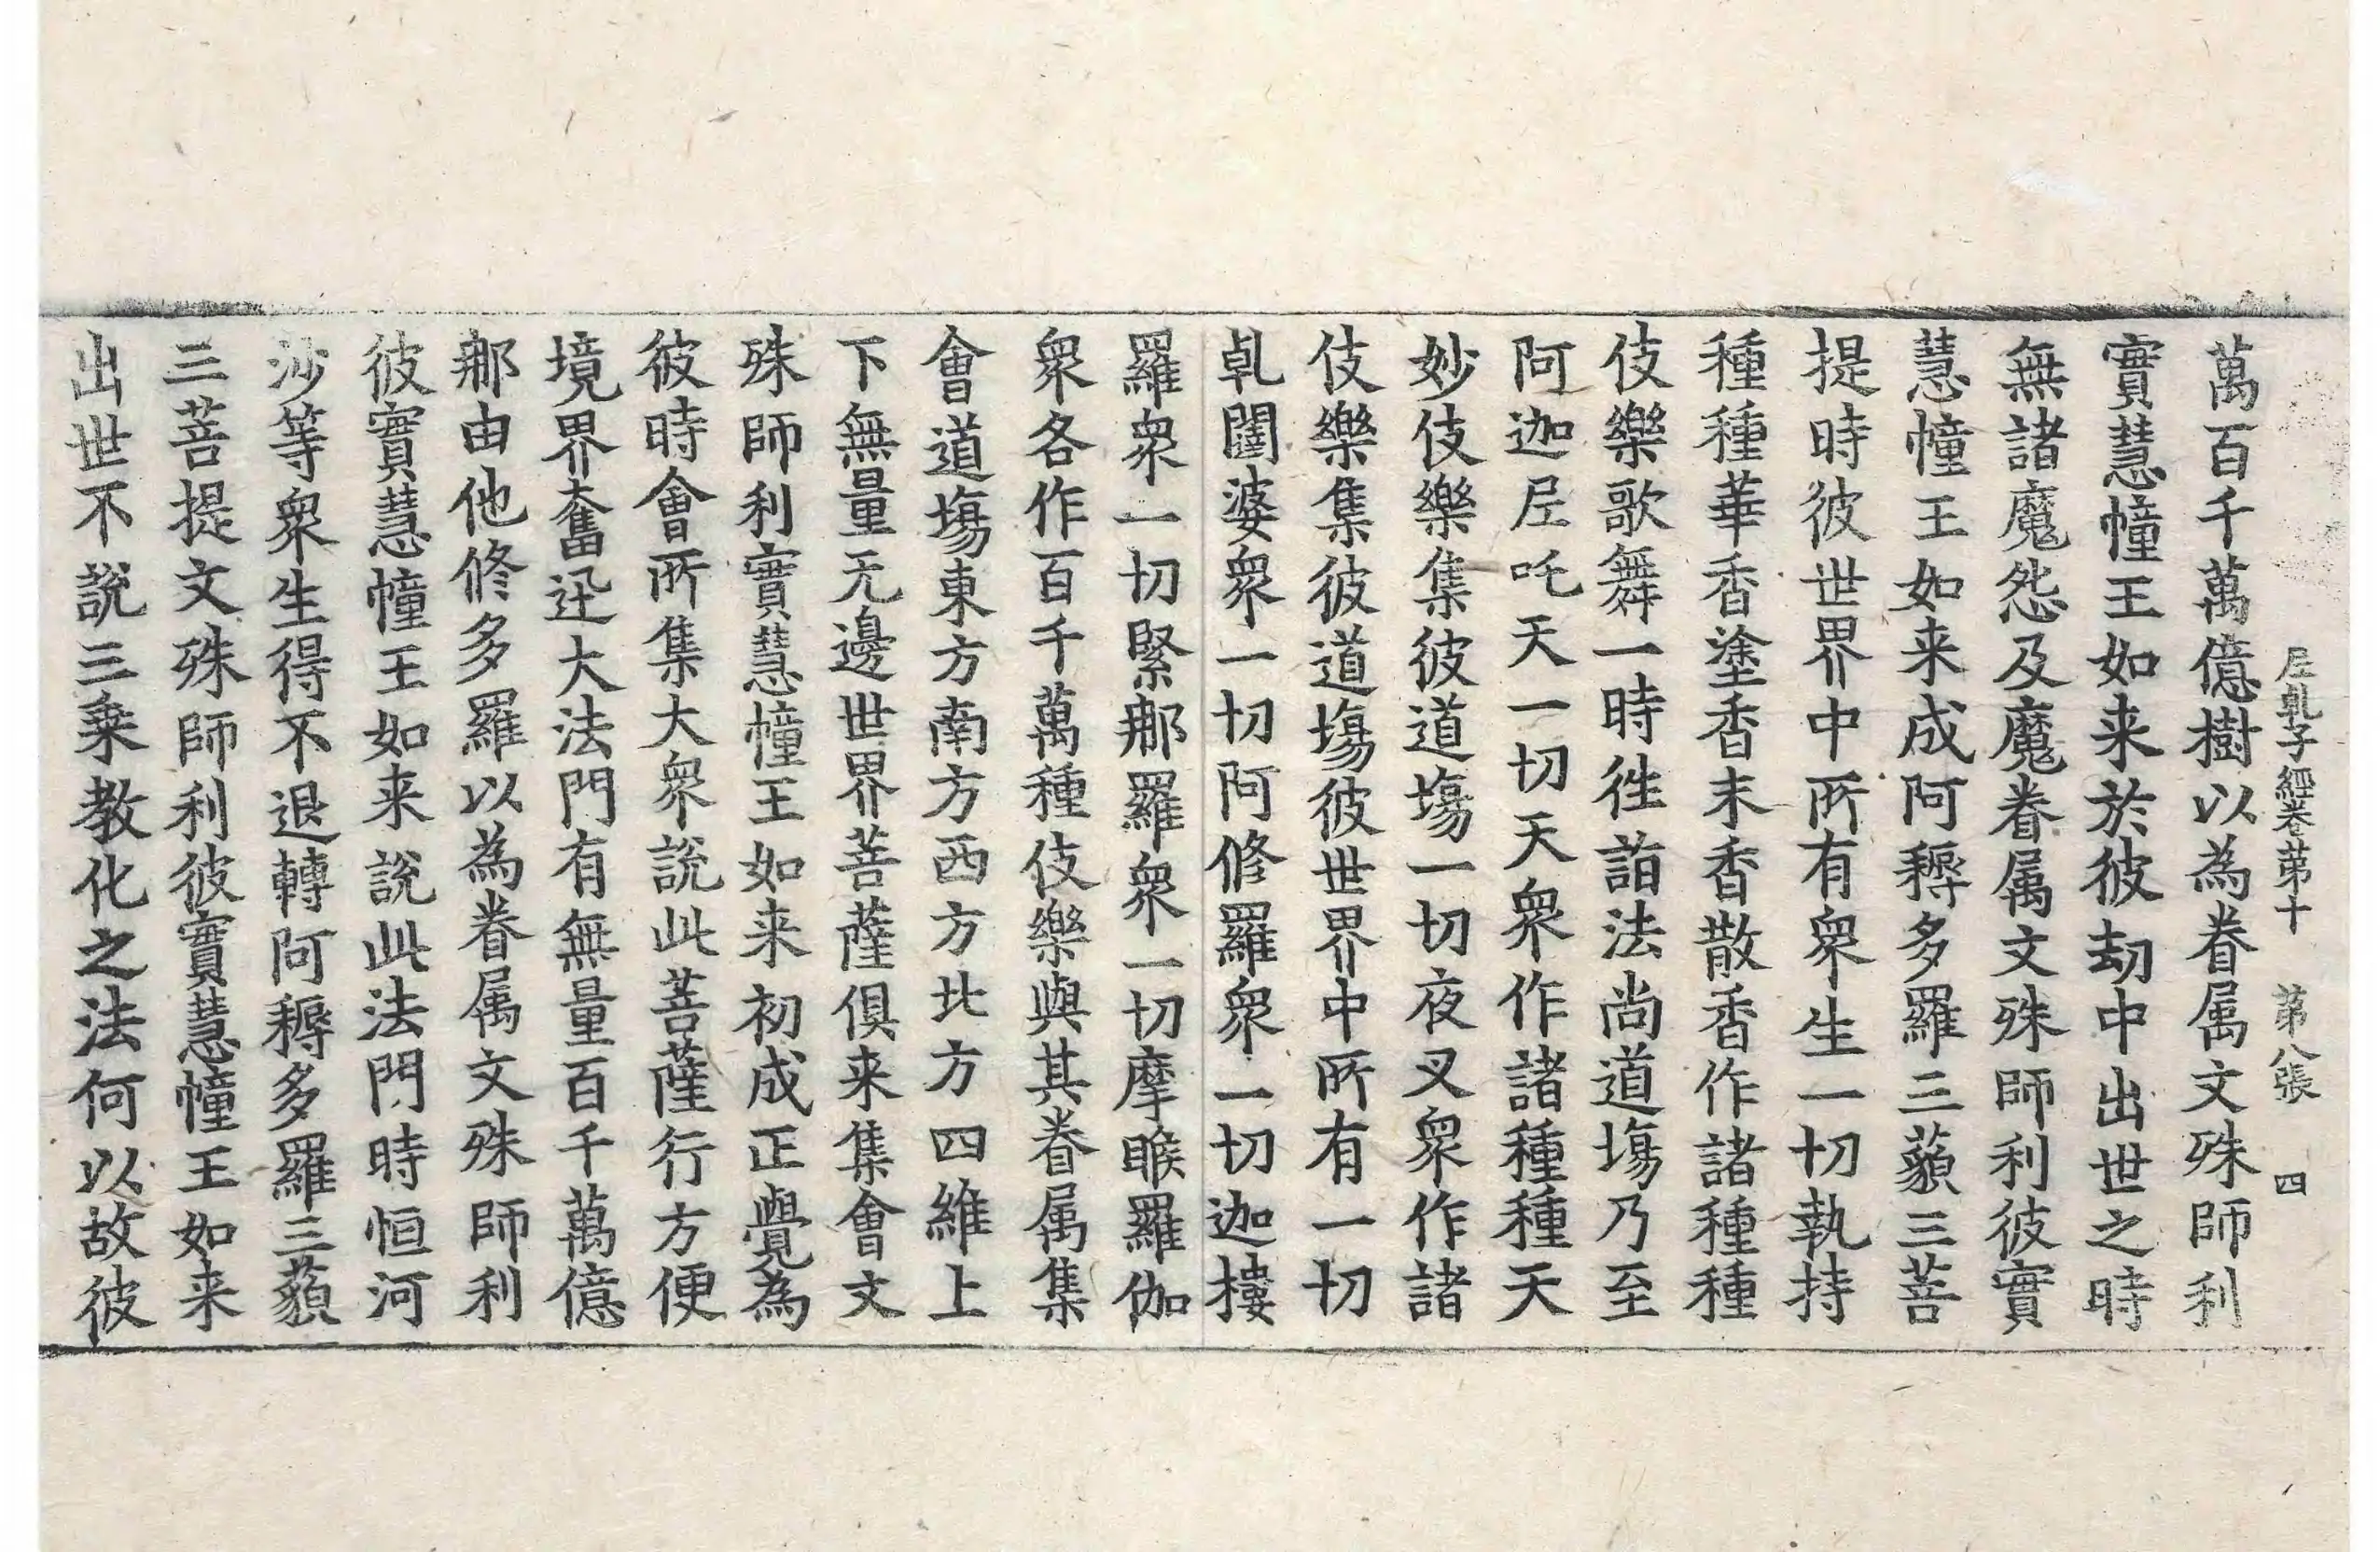 尼乹子經卷第十　第八張　四
萬百千萬億樹以為眷属文殊師利
實慧幢王如来於彼劫中出世之時
無諸魔怨及魔眷属文殊師利彼實
慧幢王如来成阿耨多羅三藐三菩
提時彼世界中所有衆生一切執持
種種華香塗香末香散香作諸種種
伎樂歌舞一時徃詣法尚道塲乃至
阿迦尼吒天一切天衆作諸種種天
妙伎樂集彼道塲一切夜叉衆作諸
伎樂集彼道塲彼世界中所有一切
乹闥婆衆一切阿修羅衆一切迦樓
羅衆一切緊那羅衆一切摩睺羅伽
衆各作百千萬種伎樂與其眷属集
會道塲東方南方西方北方四維上
下無量无邊世界菩薩俱来集會文
殊師利實慧幢王如来初成正覺為
彼時會所集大衆說此菩薩行方便
境界奮迅大法門有無量百千萬億
那由他修多羅以為眷属文殊師利
彼實慧幢王如来說此法門時恒河
沙等衆生得不退轉阿耨多羅三藐
三菩提文殊師利彼實慧幢王如来
出世不說三乗教化之法何以故彼